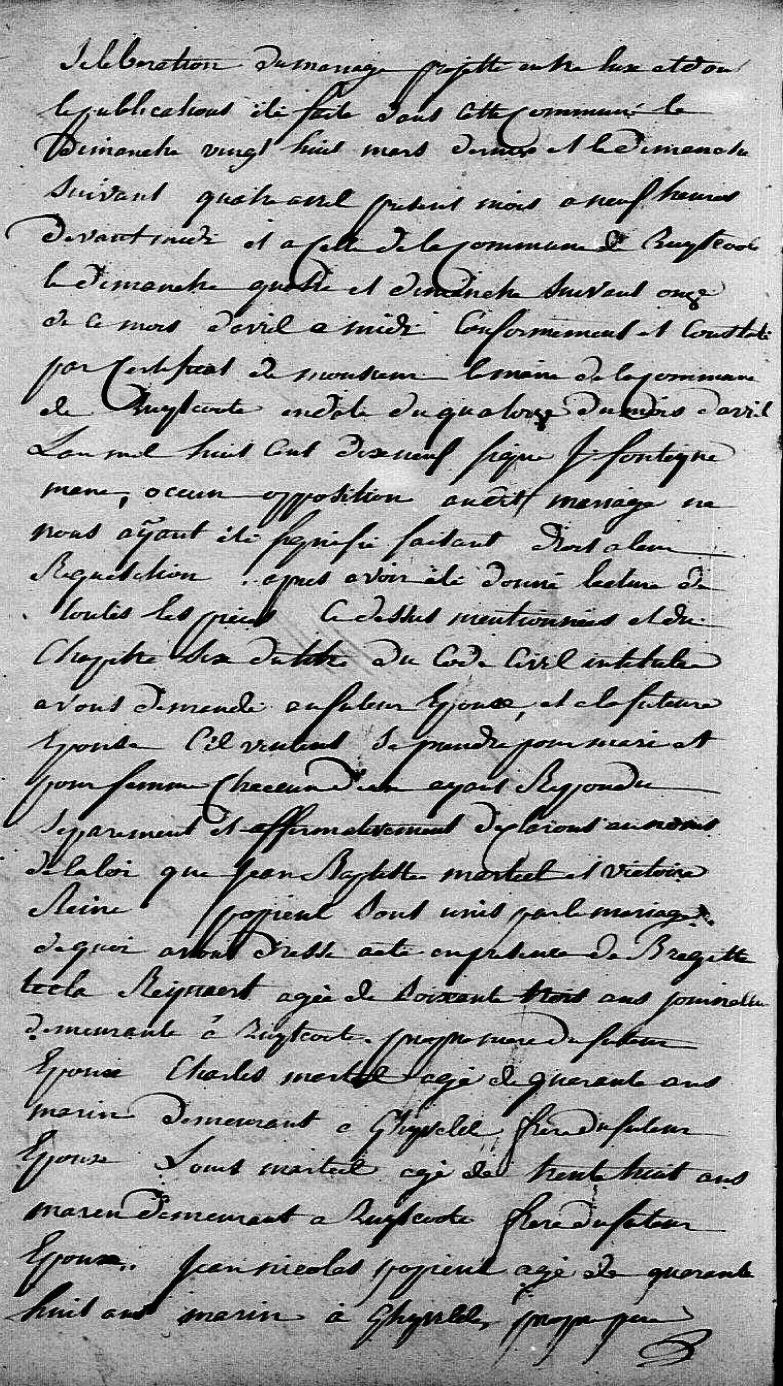 Selebration du mariage projette entre lux et don
les publications été faite dans cette Commune le
Dimanche vingt huit mars dernier et le dimanche
Suivant quatre avril present mois a neuf heures
devant midi et a Celle de la Commune de Zuytcoote
le dimanche quatre et dimanche Suivant onze
de ce mois d'avril a midi Conformement et Constaté
par Certificat de monsieur le maire de la Commune
de Zuytcoote en date du quatorze du mois d'avril
L'an mil huit Cent dixneuf signe J fonteyne
maire, occun opposition audit mariage ne
nous aÿant été signifié faisant droit a leur
Requisition apres avoir été donné lecture de
toutes les pieces Ci dessus mentionnées et du
Chapitre Six du titre du Code Civil intitulée
avons demandé au futeur Epoux, et a la futeure
Epouse S'il veulent Se prendre pour mari et
pour femme Chaccun d'eux ayant Repondu
Separement et affirmativement declarons au nom
de la loi que Jean Baptiste marteel et Victoire
Reine popieul Sont unis par le mariage.
de quoi avons dresse acte en presence de Bregitte
tecla Reynaert agée de Soixante trois ans journaliere
demeurante à Zuytcoote propre mere du futeur
Epoux Charles marteel agé de quarante ans
marin demeurant a Ghyvelde frere du futeur
Epoux Louis marteel agé de trente huit ans
marin demeurant a Zuytcoote frere du futeur
Epoux. Jean nicolas popieul agé de quarante
huit ans marin à Ghyvelde, propre pere